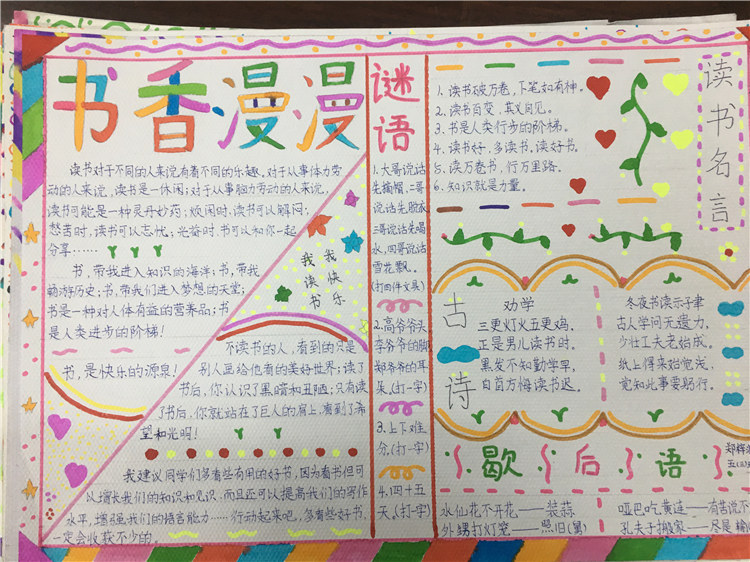 书香漫漫
读书对于不同的人来说有着不同的乐趣,对于从事体力劳
动的人来说,读书是一休闲;对于从事脑力劳动的人来说,
读书可能是一种灵丹妙药;烦闲时,读书可以解闷;
愁苦时,读书可以忘忧;兴奋时,书可以和你一起
分享……
书,带我进入知识的海洋;书,带我
畅游历史;书,带我们进入梦想的天堂;
书是一种对人体有益的营养品;书
是人类进步的阶梯!
书,是快乐的源泉!
我读书
我快乐
不读书的人,有看到的只是
别人画给他看的美好世界;读了
书后,你认识了黑暗和丑陋;只有读
了书后,你就站在了巨人的肩上,看到了希
望和光明!
我建议同学们多看些有用的好书,因为看书但可
以增长我们的知识和见识,而且还可以提高我们的写作
水平,增强我们的语言能力……行动起来吧,多看些好书,
一定会收获不少的。
谜语
1.大哥说话
先摘帽,二哥
说话先脱衣
三哥说话先喝
水,四哥说话
雪花飘。
(打四件文具)
2.高爷爷头
李爷爷的脚
郑爷爷的耳
朵。(打一字)
3.上下难
分,(打一字)
4.四十五
天。(打一字)
读书名言
1.读书破万卷,下笔如有神。
2.读书百变,其义自见。
3.书是人类行步的阶梯。
4.读书好,多读书,读好书。
5.读万卷书,行万里路。
6.知识就是力量。
古诗
劝学
三更灯火五更鸡,
正是男儿读书时。
黑发不知勤学早,
白首方悔读书迟。
冬夜书读示子聿
古人学问无遗力,
少壮工夫老始成。
纸上得来始觉浅,
觉知此事要躬行。
歇后语
水仙花不开花——装蒜
外甥打灯笼——照旧(舅)
哑巴吃黄连——有苦说不
孔夫子搬家——尽是